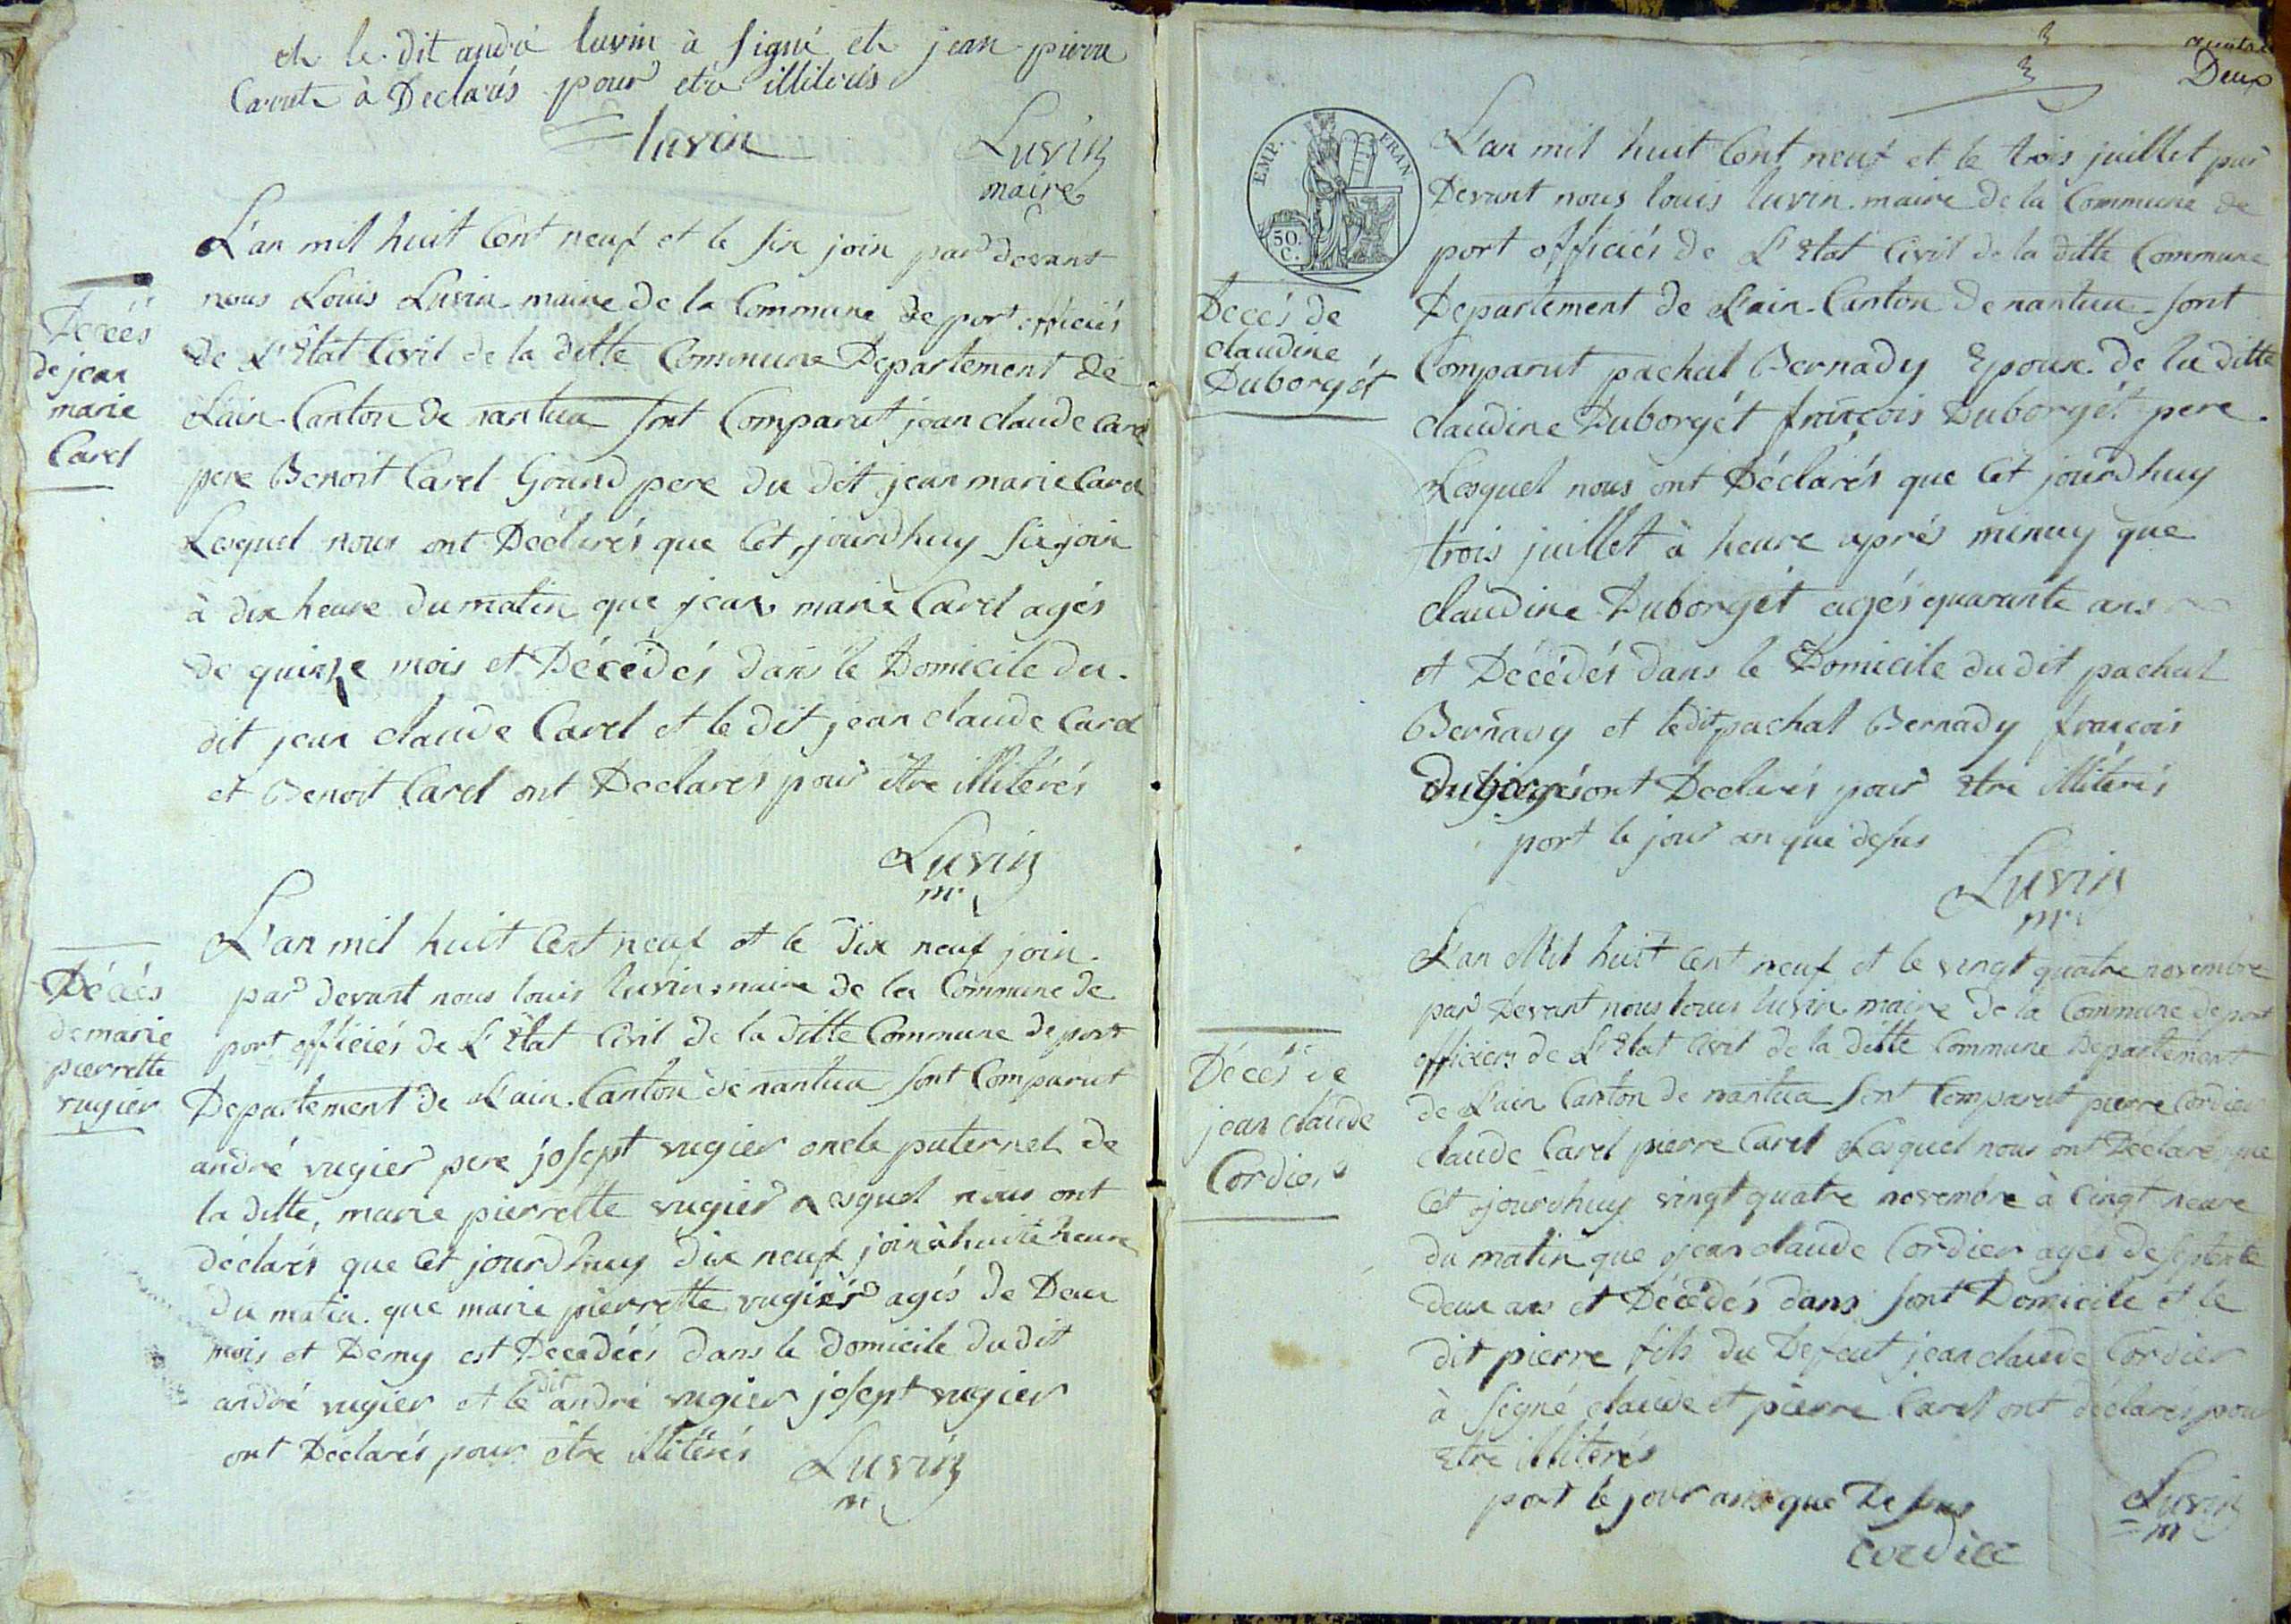 et le dit andré luvin à signé et jean pierre
Carute à Declarés pour etre illiterés
luvin
Luvin
maire
L'an mil huit Cent neuf et le six join par devant
nous Louis Luvin maire de la Commune de port officiés
de L'Etat Civil de la ditte Commune Departement de
L'ain Canton de nantua sont Comparut jean claude Carel
pere Benoit Carel Grand pere du dit jean marie Carel
Lesquel nous ont Déclarés que Cet jourdhuy six join
à dix heure du matin que jean marie Carel agés
de quinze mois et Décédés dans le Domicile du
dit jean claude Carel et le dit jean claude Carel
et Benoit Carel ont Declarés pour être illitérés
Luvin
m
Décés
de jean
marie
Carel
L'an mil huit Cent neuf et le dix neuf join
par devant nous louis luvin maire de la Commune de
port officiés de L'Etat Civil de la ditte Commune de port
Departement de L'ain Canton de nantua sont Comparut
andré vugier pere josept vugier oncle paternel de
la ditte, marie pierrette vugier Lesquel nous ont
déclarés que Cet jourdhuy dix neuf join à huite heure
du matin que marie pierrette vugier agés de Deux
mois et Demy est Decedéés dans le Domicile du dit
andré vugier et le dit andré vugier josept vugier
ont Déclarés pour être illitérés
Luvin
m
Décés
de marie
pierrette
vugier
Deux
EMP. FRAN
50.
C.
L'an mil huit Cent neuf et le trois juillet par
Devant nous louis luvin maire de la Commune de
port officiés de L'Etat Civil de la ditte Commune
Departement de L'ain Canton de nantua sont
Comparut pachal Bernady Epoux de la ditte
claudine Duborgét françois Duborgét pere
Lesquel nous ont Déclarés que Cet jourdhuy
trois juillet à heure aprés minuy que
claudine Duborgét agés quarante ans
et Décédés dans le Domicile du dit pachal
Bernady et le dit pachal Bernady françois
ont Declarés pour Etre illitérés
port le jour an que desus
Luvin
m
Decés de
claudine
Duborgét
L'an Mil huit Cent neuf et le vingt quatre novembre
par Devant nous louis luvin maire de la Commune de port
officiers de L'Etat Civil de la ditte Commune Departement
de L'ain Canton de nantua sont Comparut pierre Cordier
claude Carel pierre Carel Lesquel nous ont Déclarés que
Cet jourdhuy vingt quatre novembre à Cinqt heure
du matin que jean claude Cordier agés de septente
deux ans et Décédés dans sont Domicile et le
dit pierre fils du Defeut jean claude Cordier
à signé claude et pierre Carel ont déclarés pour
Etre illiterés
port le jour ans que Desus
Cordier
Luvin
m
Décés de
jean claude
Cordier